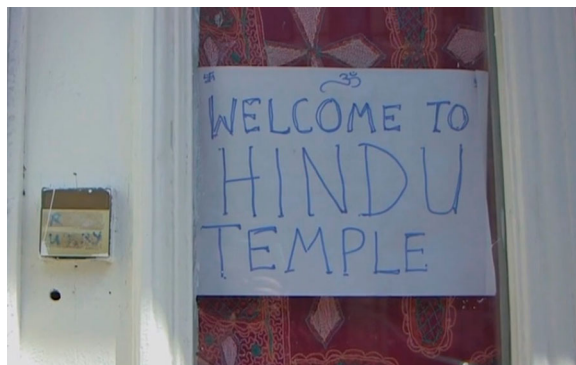 卐 ॐ
WELCOME TO
HINDU
TEMPLE